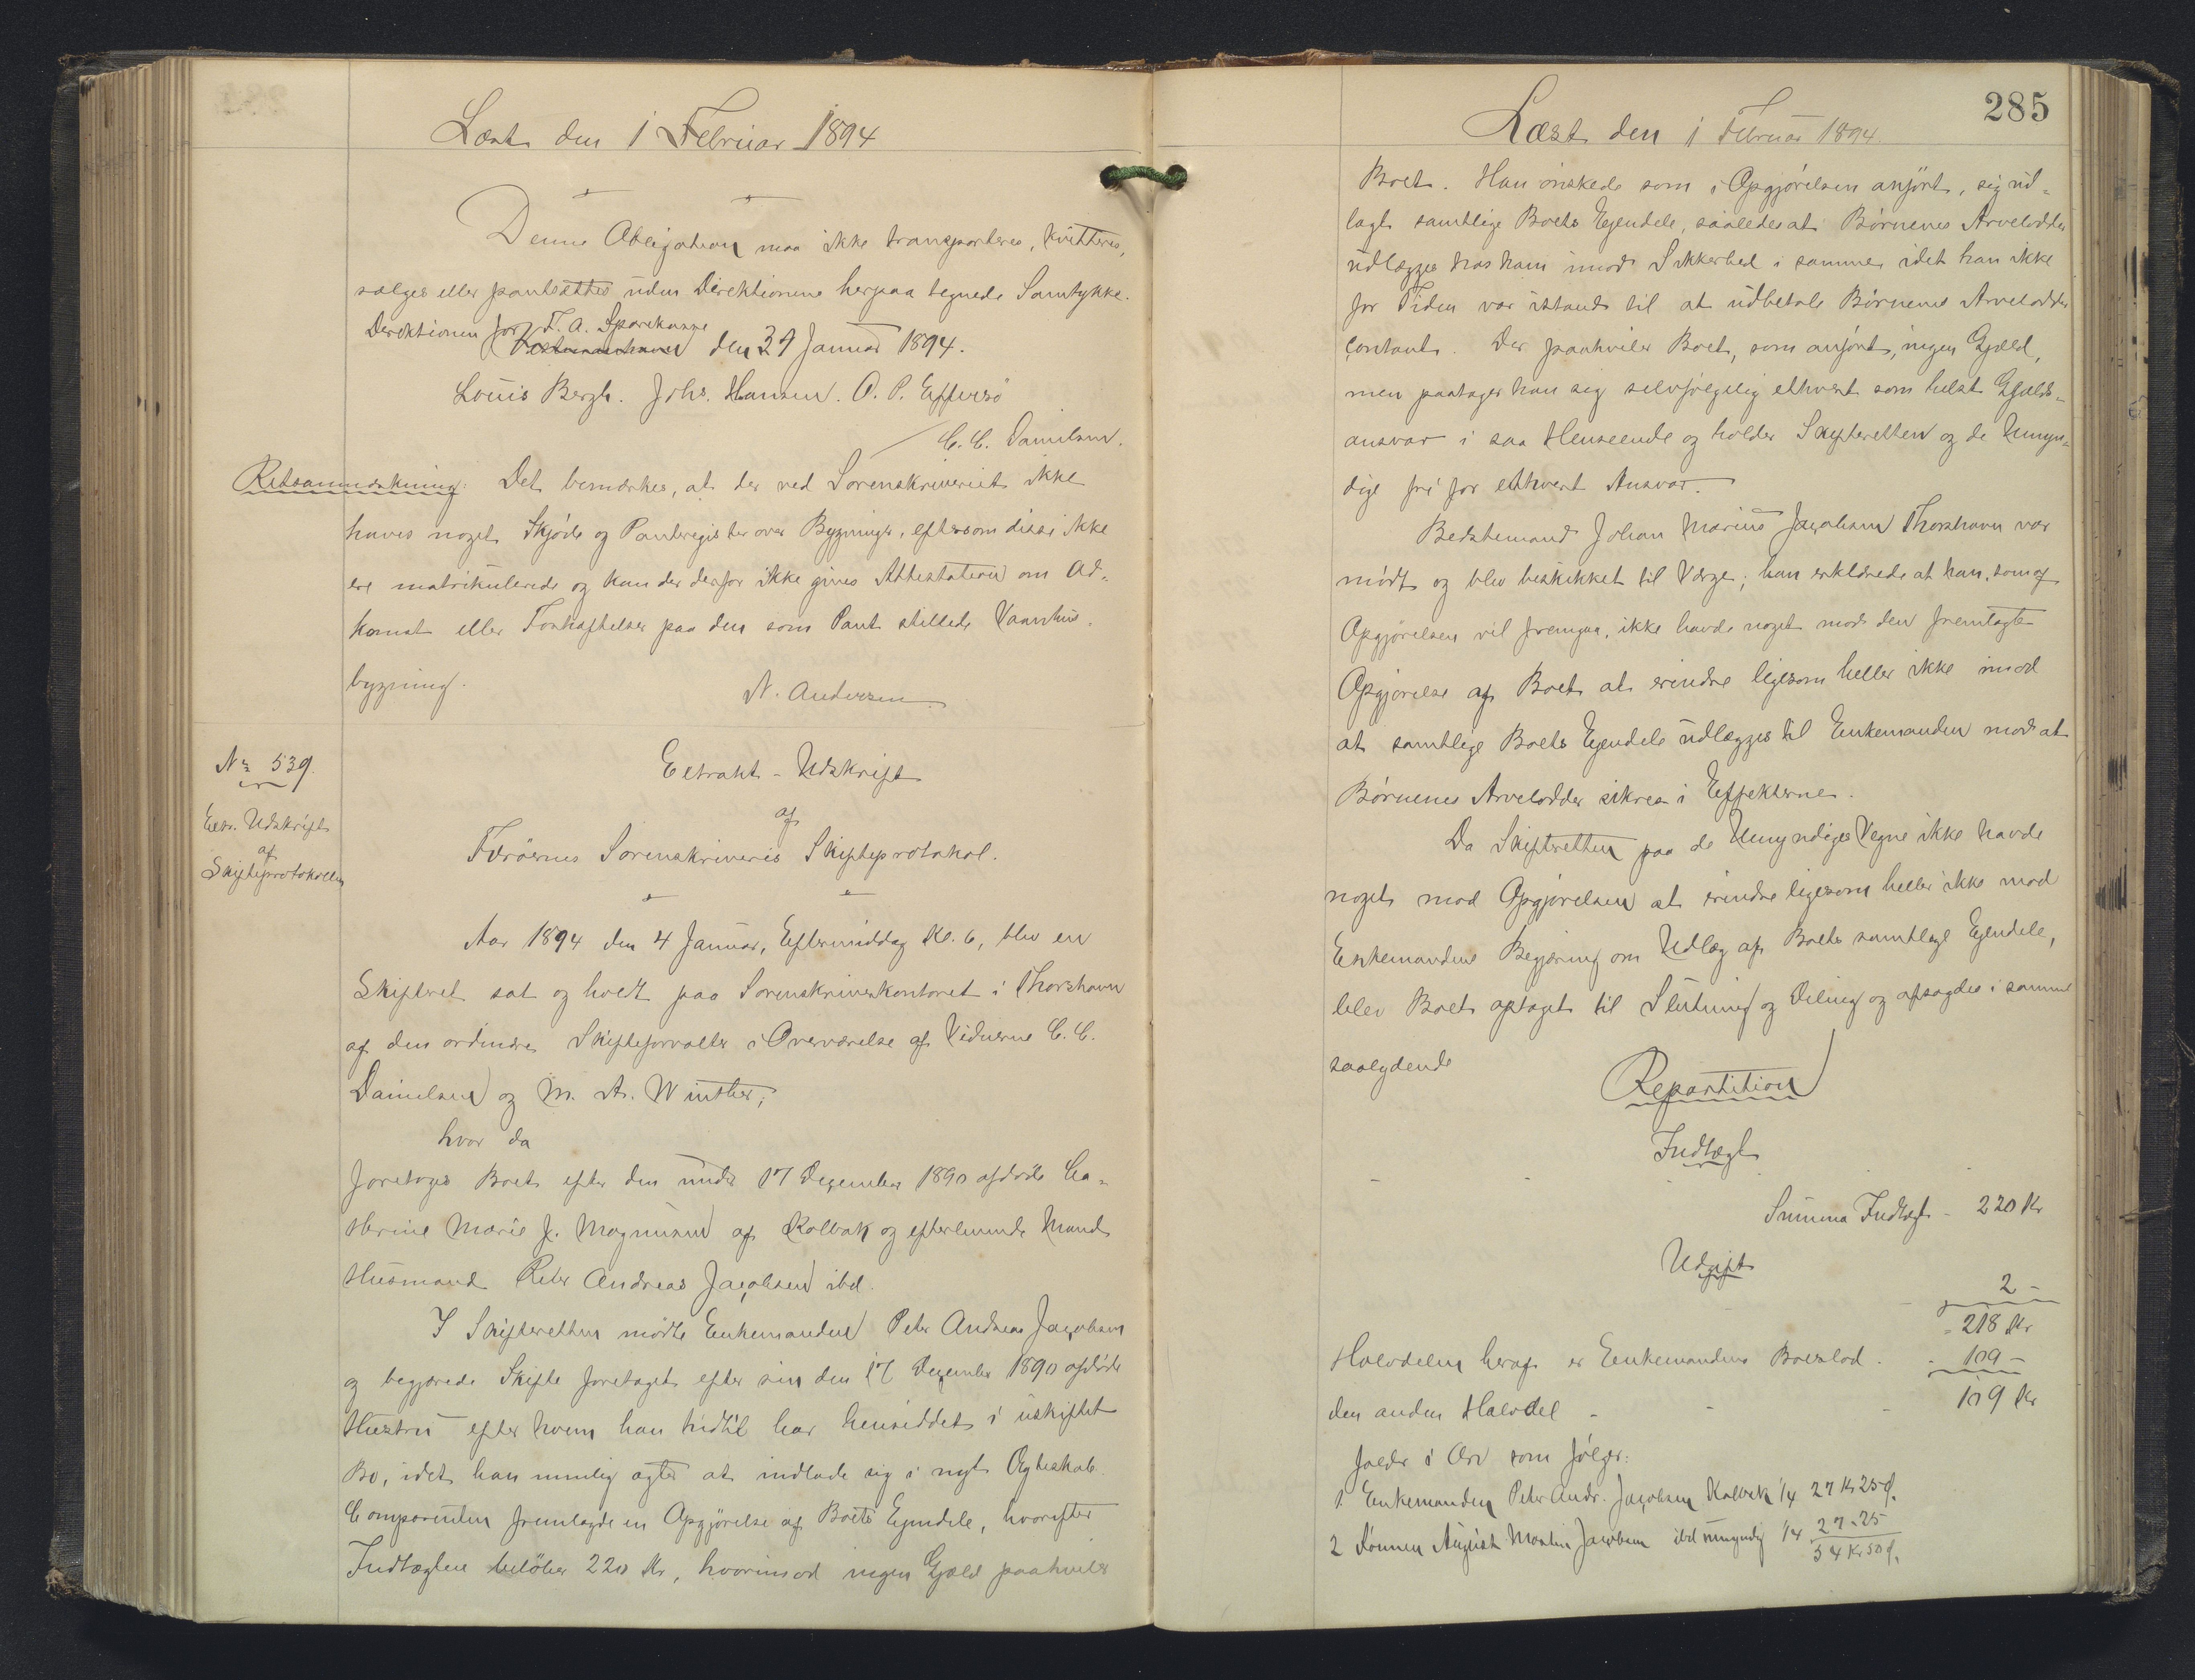 Læst den 1 Februar 1894
Denne Obligation maa ikke transporteres, kvitteres,
sælges eller pantsættes uden Direktionens herpaa tegnede Samtykke.
Direktionen for F. A. Sparekasse
den 29 Januar 1894.
Louis Bergh. Johs. Hansen. O. P. Effersö
/ C. C. Danielsen.
Retsanmærkning: Det bemærkes, at der ved Sorenskriveriet ikke
haves noget Skjöde og Panteregister over Bygninger, eftersom disse ikke
ere matrikulerede og kan der derfor ikke gives Attestation om Ad-
komst eller Forhæftelser paa den som Pant stillede Vaanhus-
bygning.
N. Andersen.
No 539.
Extr. Udskrift
af
Skifteprotokollen
Extrakt-Udskrift
af
Færöernes Sorenskriveris Skifteprotokol.
Aar 1894 den 4 Januar, Eftermiddag Kl. 6, blev en
Skifteret sat og holdt paa Sorenskriverkontoret i Thorshavn
af den ordinære Skifteforvalter i Overværelse af Vidnerne C. C.
Danielsen og M. A. Winther;
hvor da
foretoges Boet efter den under 17 December 1890 afdöde Ca-
thrine Marie J. Magnusen af Kolbak og efterlevende Mand
Husmand Peter Andreas Jacobsen ibd.
I Skifteretten mödte Enkemanden Peter Andreas Jacobsen
og begjærede Skifte foretaget efter sin den 17 December 1890 afdöde
Hustru efter hvem han hidtil har hensiddet i uskiftet
Bo, idet han nemlig agter at indlade sig i nyt Ægteskab.
Comparenten fremlagde en Opgjörelse af Boets Ejendele, hvorefter
Indtægten belöber 220 Kr, hvorimod ingen Gjæld paahviler
285
Læst den 1 Februar 1894.
Boet. Han önskede som i Opgjörelsen anfört, sig ud-
lagt samtlige Boets Ejendele, saaledes at Börnenes Arvelodder
udlægges hos ham imod Sikkerhed i samme, idet han ikke
for Tiden var istand til at udbetale Börnenes Arvelodder
contant. Der paahviler Boet, som anfört, ingen Gjæld,
men paatager han sig selvfölgelig ethvert som helst Gjælds-
ansvar i saa Henseende og holder Skifteretten og de Umyn-
dige fri for ethvert Ansvar.
Bedstemand Johan Marius Jacobsen Thorshavn var
mödt og blev beskikket til Værge; han erklærede at han, som af
Opgjörelsen vil fremgaa, ikke havde noget mod den fremlagte
Opgjörelse af Boet at erindre ligesom heller ikke imod
at samtlige Boets Ejendele udlægges til Enkemanden mod at
Börnenes Arvelodder sikres i Effekterne.
Da Skifteretten paa de Umyndiges Vegne ikke havde
noget mod Opgjörelsen at erindre ligesom heller ikke mod
Enkemandens Begjæring om Udlæg af Boets samtlige Ejendele,
blev Boet optaget til Slutning og Deling og afsagdes i samme
saalydende
Repartition
Indtægt
Summa Indtægt - 220 Kr
Udgift
2 -
- 218 Kr
Halvdelen heraf er Enkemandens Boeslod - 109 -
den anden Halvdel - - - 109 Kr
falder i Arv som fölger:
1. Enkemanden Peter Andr. Jacobsen Kolbak 1/4 27 Kr 25 Ø.
2 Sönnen August Martin Jacobsen ibd umyndig 1/4 27 - 25
54 Kr 50 Ø.